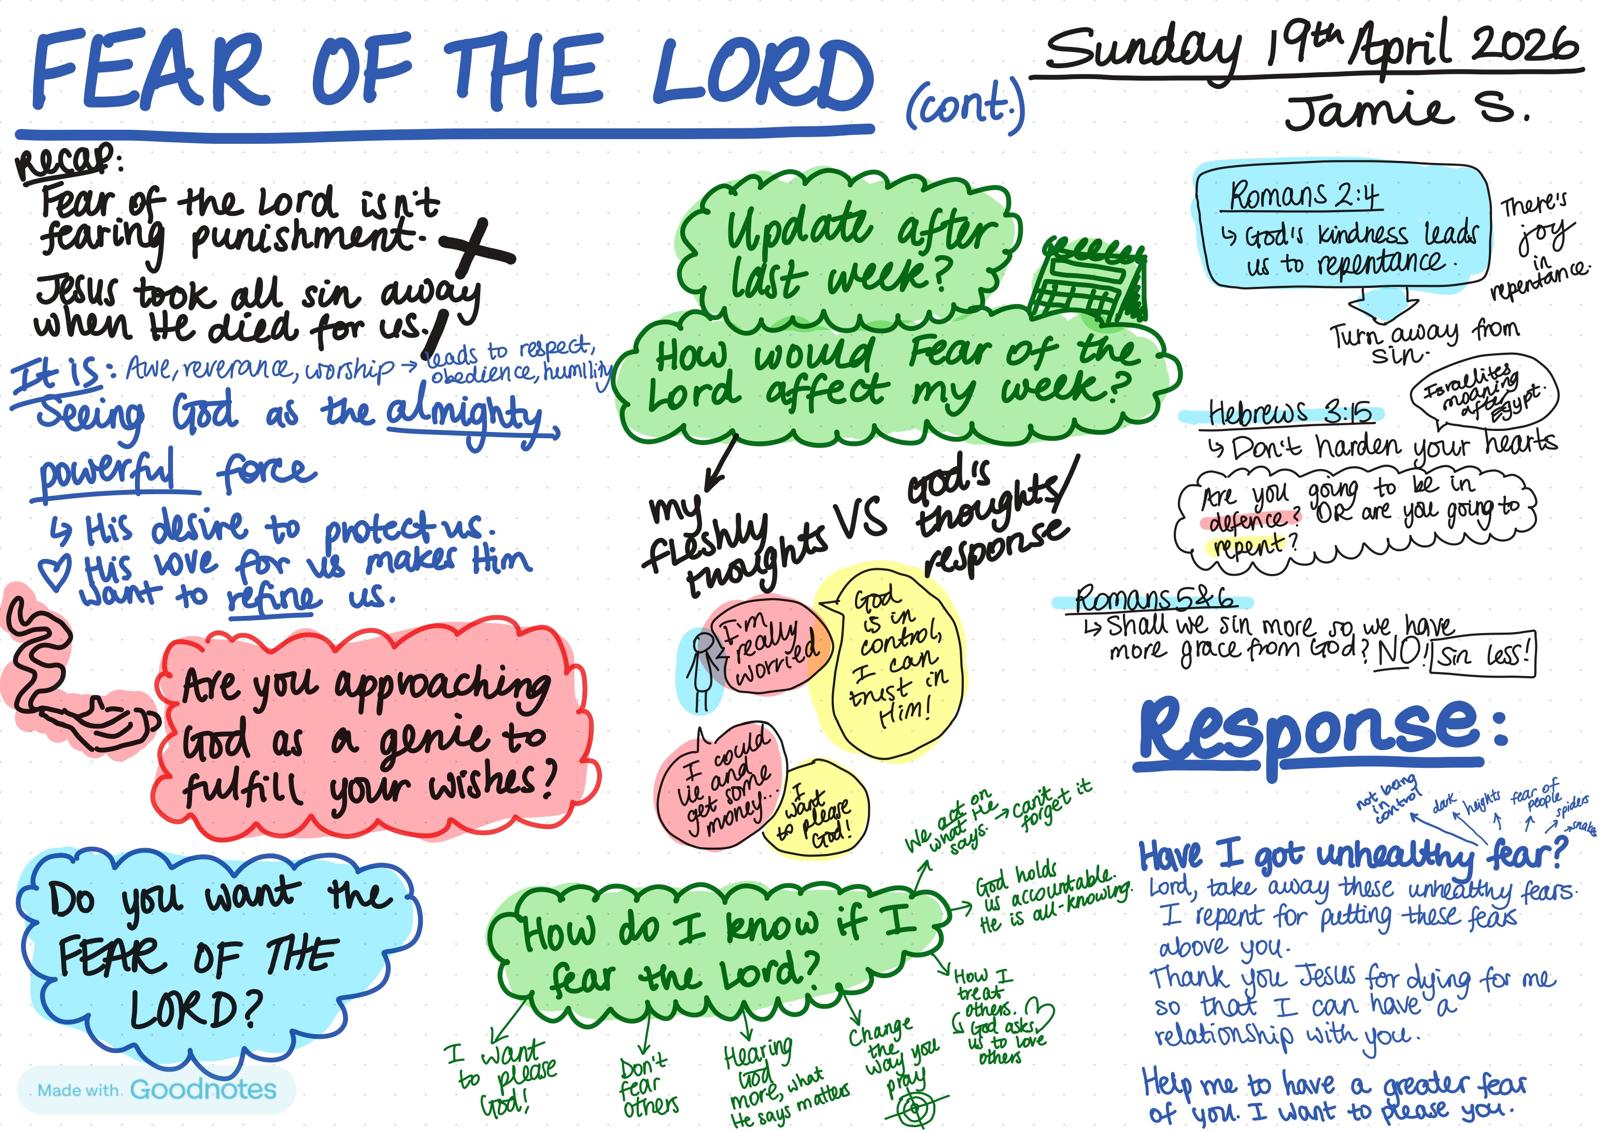 FEAR OF THE LORD (cont.)
Sunday 19th April 2026
Jamie S.
Recap:
Fear of the Lord isn't
fearing punishment.
Jesus took all sin away
when He died for us.
It is: Awe, reverance, worship → leads to respect,
obedience, humility
Seeing God as the almighty,
powerful force
↳ His desire to protect us.
♡ His love for us makes Him
want to refine us.
Are you approaching
God as a genie to
fulfill your wishes?
Do you want the
FEAR OF THE
LORD?
Made with Goodnotes
Update after
last week?
How would Fear of the
Lord affect my week?
my
fleshly
thoughts
VS
God's
thoughts/
response
I'm
really
worried
God
is in
control,
I can
trust in
Him!
I could
lie and
get some
money...
I
want
to please
God!
How do I know if I
fear the Lord?
We act on
what He
says.
→ can't
forget it
God holds
us accountable.
He is all-knowing.
How I
treat
others.
↳ God asks
us to love
others
Change
the
way you
pray
Hearing
God
more, what
He says matters
Don't
fear
others
I want
to please
God!
Romans 2:4
↳ God's kindness leads
us to repentance.
There's
joy
in
repentance.
Turn away from
sin.
Hebrews 3:15
↳ Don't harden your hearts
Israelites
moaning
after
Egypt.
Are you going to be in
defence? OR are you going to
repent?
Romans 5&6
↳ Shall we sin more so we have
more grace from God? NO! Sin less!
Response:
not being
in
control
dark
heights
fear of
people
spiders
snakes
Have I got unhealthy fear?
Lord, take away these unhealthy fears.
I repent for putting these fears
above you.
Thank you Jesus for dying for me
so that I can have a
relationship with you.
Help me to have a greater fear
of you. I want to please you.